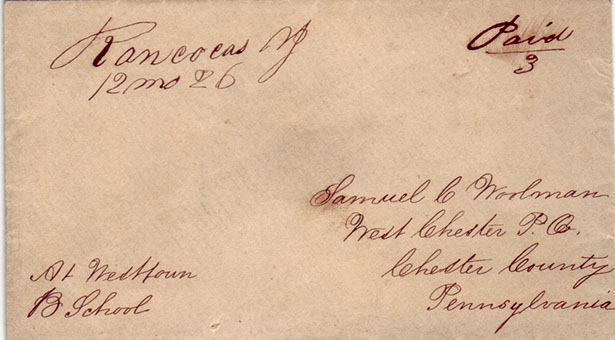 Rancocas NJ
12 mo 26
Paid
3
Samuel C Woolman
West Chester P. O.
Chester County
Pennsylvania
At Westtown
B School